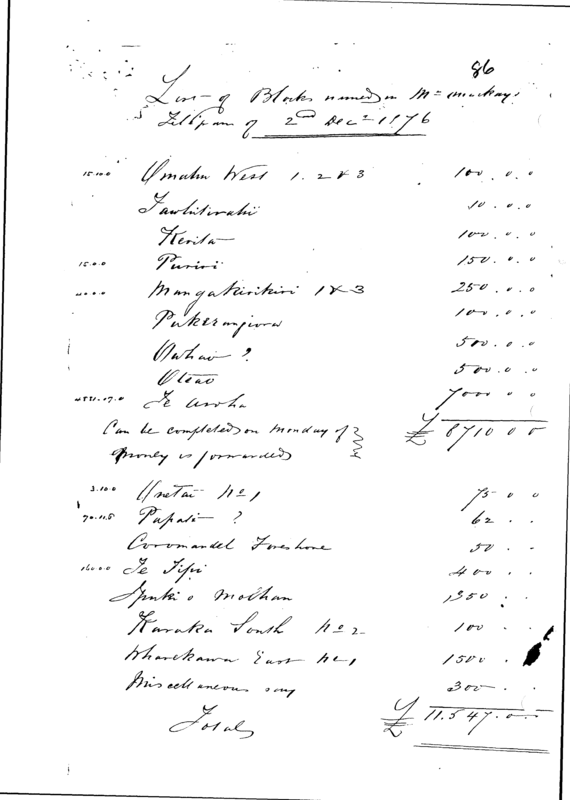 86
List of Blocks named in Mr Mackay's
Telegram of 2nd Decr 1876
15.10.0 Omahu West 1. 2 & 3 100 . 0 . 0
Tawhitirahi 10 . 0 . 0
Kerita 100 . 0 . 0
15.0.0 Puriri 150 . 0 . 0
Mangakirikiri 1 & 3 250 . 0 . 0
Pukerangiora 100 . 0 . 0
? 500 . 0 . 0
Oteao 500 . 0 . 0
Te Aroha 7000 0 0
Can be completed on Monday if £ 8710 0 0
Money is forwarded
3.10.0 No 1 75 0 0
70.11.8 ? 62 . .
Coromandel Foreshore 50 . .
160.0.0 Te Tipi 400 . .
1350 . .
Karaka South No 2 100 . .
Wharekawa East No 1 1500 .
Miscellaneous say 300 .
Total £ 11.547.0.0